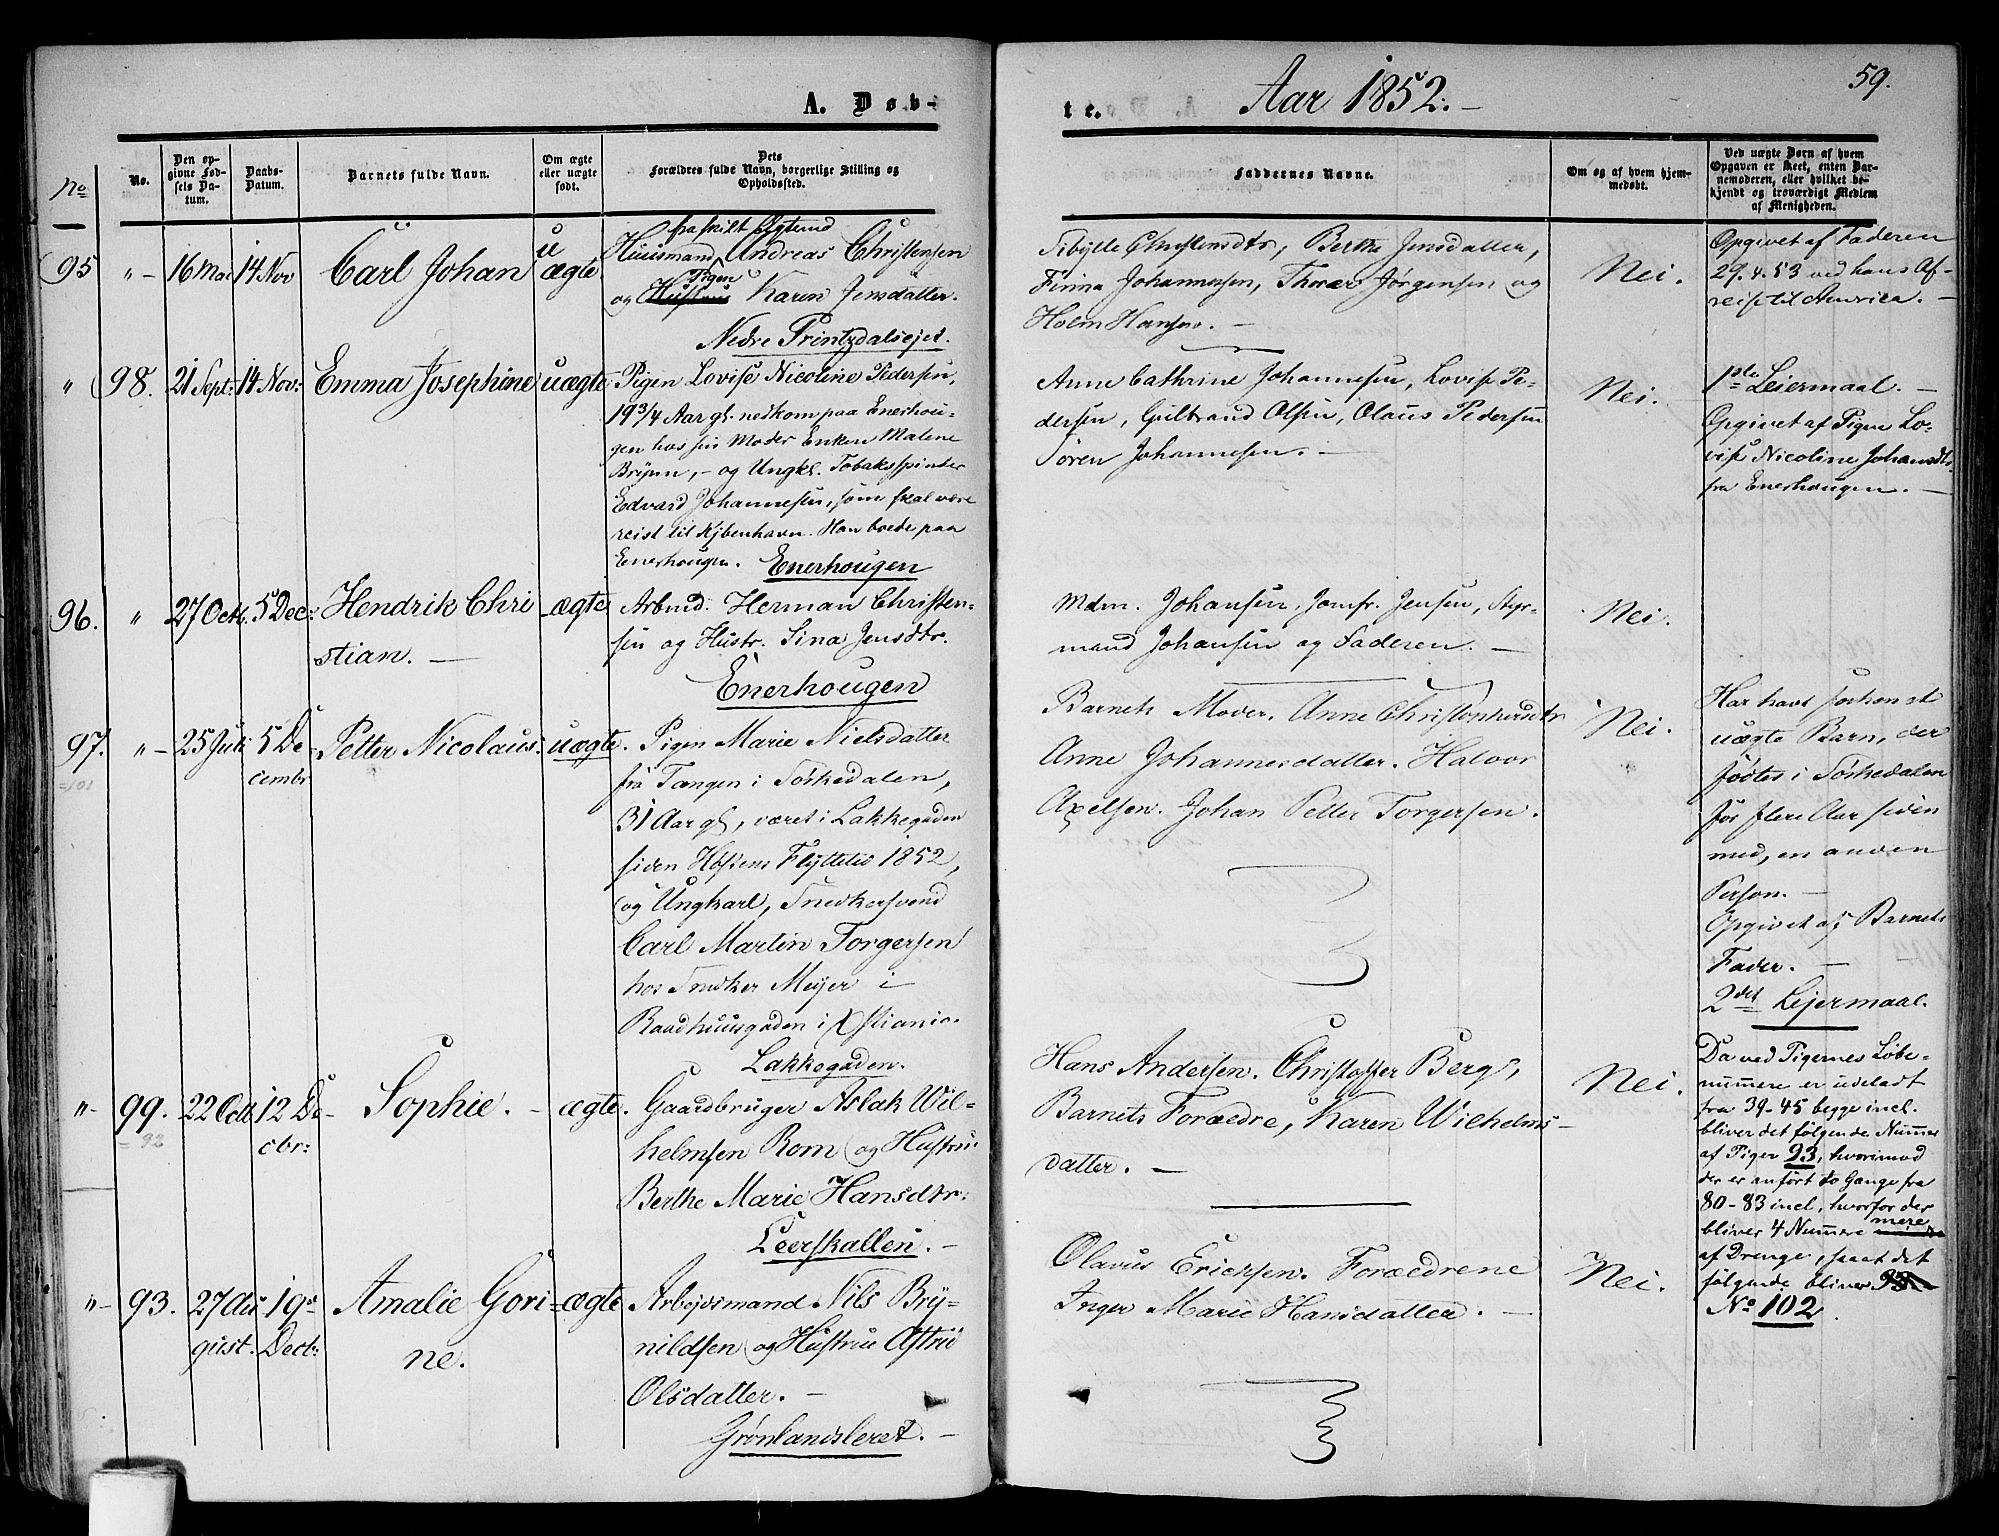 A. Døb-
te.
Aar 1852.
59.
No
No.
Den op-
givne Fød-
sels Da-
tum.
Daabs-
Datum.
Barnets fulde Navn.
Om ægte
eller uægte
født.
Dets
Forældres fulde Navn, borgerlige Stilling og
Opholdssted.
Faddernes Navne.
Om og af hvem hjem-
medøbt.
Ved uægte Børn af hvem
Opgaven er skeet, enten Bar-
nemoderen, eller hvilket be-
kjendt og troværdigt Medlem
af Menigheden.
95
"-
16 Mai
14 Nov
Carl Johan
u
ægte
fraskilt Ægtemd
Huusmand Andreas Christensen
Pigen
og Hustrue Karen Jensdatter.
Nedre Printzdalsejet.
Sibylle Christensdtr, Berthe Jensdatter,
Finna Johannessen, Thorer Jørgensen og
Holm Hansen. -
Nei.
Opgivet af Faderen
29.4.53 ved hans Af-
reise til America. -
"
98.
21 Sept:
14 Nov:
Emma Josephine
uægte
Pigen Lovise Nicoline Pedersen,
19 3/4 Aar gl. nedkom paa Enerhou-
gen hos sin Moder Enken Malene
Brynn, - og Ungkl. Tobaksspinder
Edvard Johannesen, som skal være
reist til Kjbenhavn. Han boede paa
Enerhougen. Enerhougen
Anne Cathrine Johannesen, Lovise Pe-
dersen, Gulbrand Olsen, Olaus Pedersen
Søren Johannesen. -
Nei.
1ste Leiermaal. -
Opgivet af Pigen Lo-
vise Nicoline Johansdtr
fra Enerhougen. -
96.
"
27 Octb.
5 Dec:
Hendrik Chri
stian. -
ægte
Arbmd: Herman Christen-
sen og Hustr. Sina Jensdtr.
Enerhougen
Mdm. Johansen, Jomfr. Jensen, Styr-
mand Johansen og Faderen. -
Nei.
97.
=101
"-
25 Juli
5 De-
cembr
Petter Nicolaus.
uægte.
Pigen Marie Nielsdatter
fra Tangen i Sørkedalen,
31 Aar gl, været i Lakkegaden
siden Høstens Flyttetid 1852,
og Ungkarl, Snedkersvend
Carl Martin Torgersen
hos Snedker Meyer i
Raadhuusgaden i Xstiania.
Lakkegaden.
Barnets Moder. Anne Christophersdtr
Anne Johannesdatter. Halvor
Axelsen. Johan Petter Torgersen.
Nei.
Har havt forhen et
uægte Barn, der
fødtes i Sørkedalen
for flere Aar siden
med, en anden
Person. -
Opgivet af Barnets
Fader. -
2det Lejermaal.
"-
99.
=92
22 Octb
12 De-
cbr:
Sophie. -
ægte.
Gaardbruger Aslak Wil-
helmsen Rom og Hustrue
Berthe Marie Hansdtr.
Leerskallen. -
Hans Andersen. Christoffer Berg,
Barnets Forældre, Karen Wilhelms-
datter. -
Nei.
Da ved Pigernes Løbe-
nummere er udeladt
fra 39-45 begge incl.
bliver det følgende Nummer
af Piger 93, hvorimod
der er anført to Gange fra
80-83 incl, hvorfor der
bliver 4 Nummere mere
af Drenge, saaat det
følgende bliver
No 102.
"-
93.
27 Au
gust.
19de
Decb:
Amalie Gori-
ne.
ægte
Arbejdsmand Nils Bry-
nildsen og Hustrue Astrid
Olsdatter. -
Grønlandsleret. -
Olavus Ericksen. Forældrene
Inger Marie Hansdatter. -
Nei.